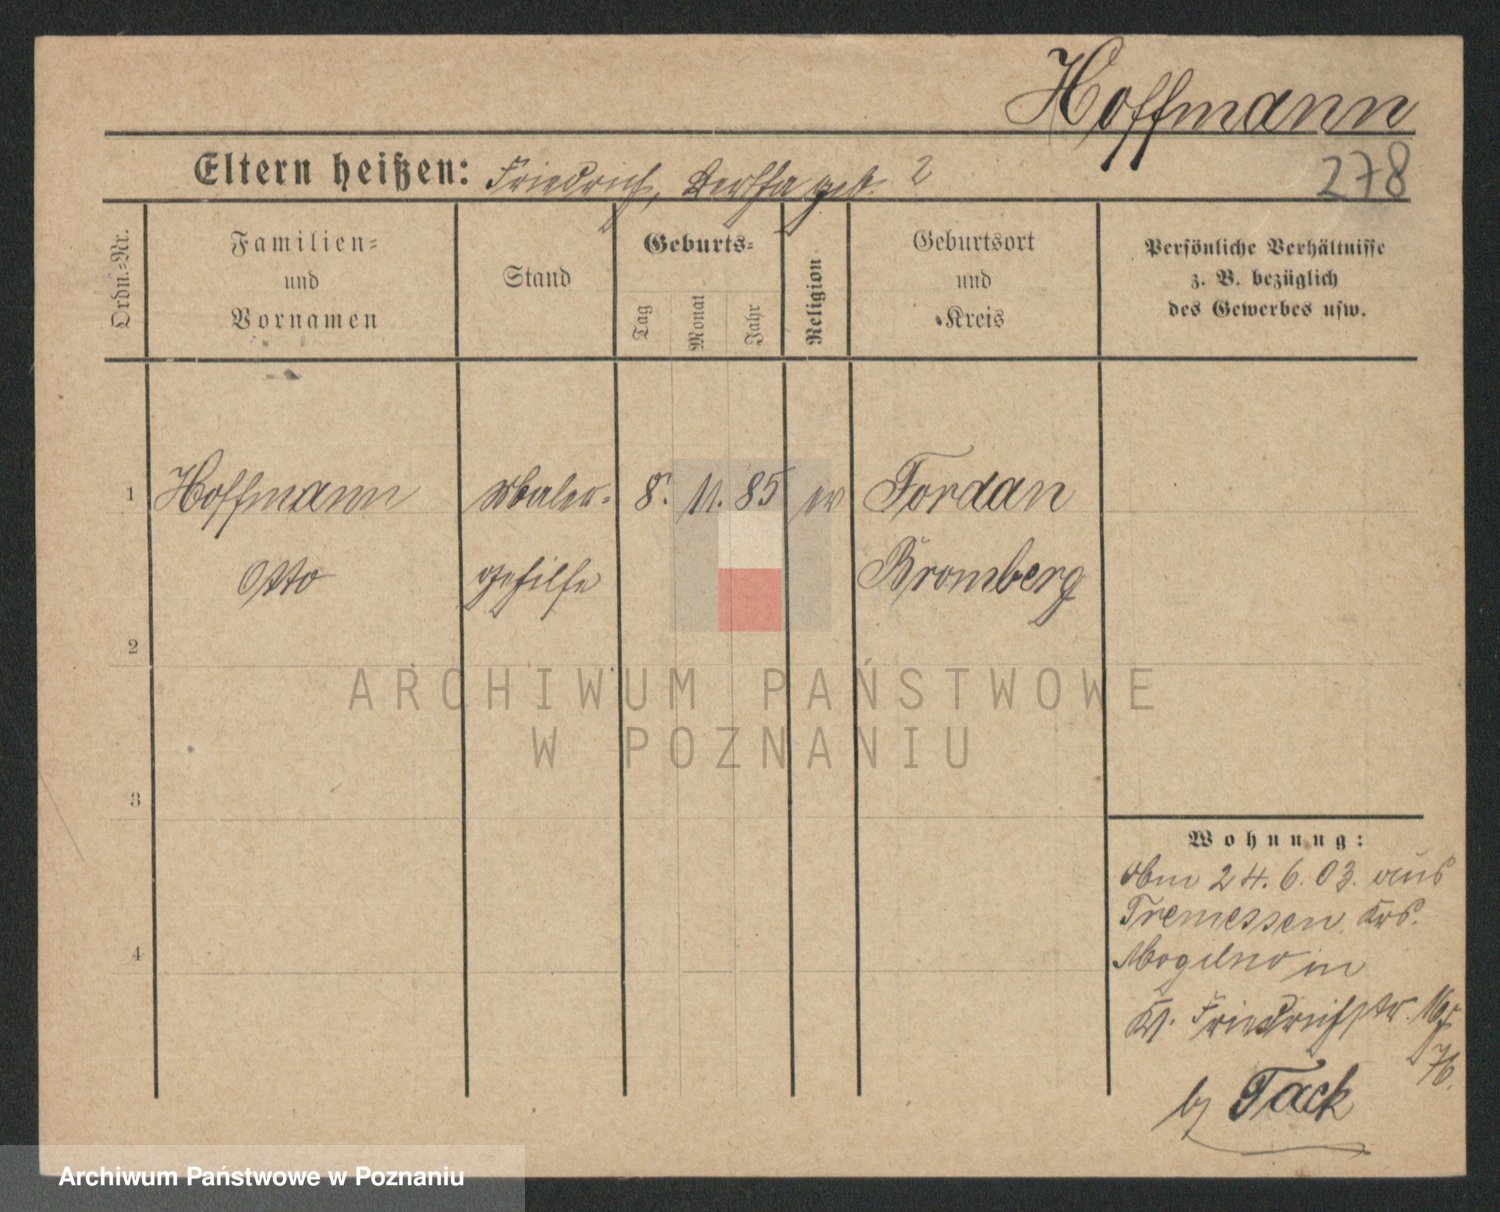 Hoffmann
278
Eltern heißen: Friedrich, Bertha geb. ?
Ordn.-Nr.
Familien-
und
Vornamen
Stand
Geburts-
Tag
Monat
Jahr
Religion
Geburtsort
und
Kreis
Persönliche Verhältnisse
z. B. bezüglich
des Gewerbes usw.
1 Hoffmann Maler- 8. 11. 85 ev Fordan
Otto gehilfe Bromberg
2
3
4
Wohnung:
Am 24.6.03. aus
Tremessen Krs.
Mogilno in
Friedrichstr.
b/ Tack
ARCHIWUM PAŃSTWOWE
W POZNANIU
Archiwum Państwowe w Poznaniu